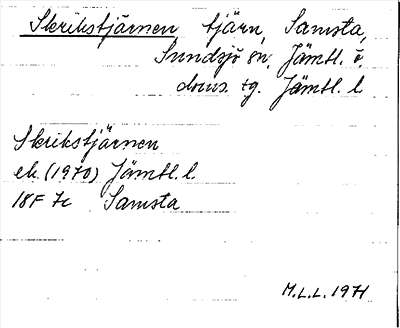 Skrikstjärnen tjärn, Samsta,
Sundsjö sn, Jämtl. ö.
doms. tg. Jämtl. l.
Skrikstjärnen
ek. (1970) Jämtl. l.
18F 7c Samsta
M.L.L. 1971